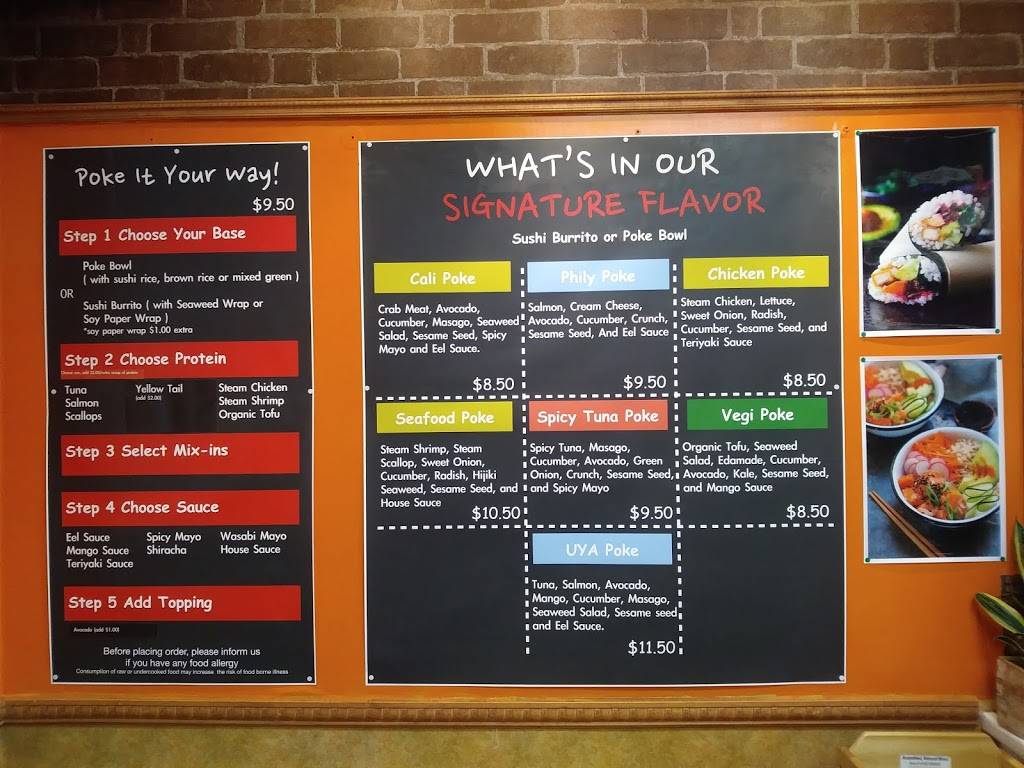 Poke It Your Way!
$9.50
Step 1 Choose Your Base
Poke Bowl
( with sushi rice, brown rice or mixed green )
OR
Sushi Burrito ( with Seaweed Wrap or
Soy Paper Wrap )
*soy paper wrap $1.00 extra
Step 2 Choose Protein
Tuna
Salmon
Scallops
Yellow Tail
(add $2.00)
Steam Chicken
Steam Shrimp
Organic Tofu
Step 3 Select Mix-ins
Step 4 Choose Sauce
Eel Sauce
Mango Sauce
Teriyaki Sauce
Spicy Mayo
Shiracha
Wasabi Mayo
House Sauce
Step 5 Add Topping
Avocado (add $1.00)
Before placing order, please inform us
if you have any food allergy
Consumption of raw or undercooked food may increase the risk of food borne illness
WHAT'S IN OUR
SIGNATURE FLAVOR
Sushi Burrito or Poke Bowl
Cali Poke
Crab Meat, Avocado,
Cucumber, Masago, Seaweed
Salad, Sesame Seed, Spicy
Mayo and Eel Sauce.
$8.50
Phily Poke
Salmon, Cream Cheese,
Avocado, Cucumber, Crunch,
Sesame Seed, And Eel Sauce
$9.50
Chicken Poke
Steam Chicken, Lettuce,
Sweet Onion, Radish,
Cucumber, Sesame Seed, and
Teriyaki Sauce
$8.50
Seafood Poke
Steam Shrimp, Steam
Scallop, Sweet Onion,
Cucumber, Radish, Hijiki
Seaweed, Sesame Seed, and
House Sauce
$10.50
Spicy Tuna Poke
Spicy Tuna, Masago,
Cucumber, Avocado, Green
Onion, Crunch, Sesame Seed,
and Spicy Mayo
$9.50
Vegi Poke
Organic Tofu, Seaweed
Salad, Edamade, Cucumber,
Avocado, Kale, Sesame Seed,
and Mango Sauce
$8.50
UYA Poke
Tuna, Salmon, Avocado,
Mango, Cucumber, Masago,
Seaweed Salad, Sesame seed
and Eel Sauce.
$11.50